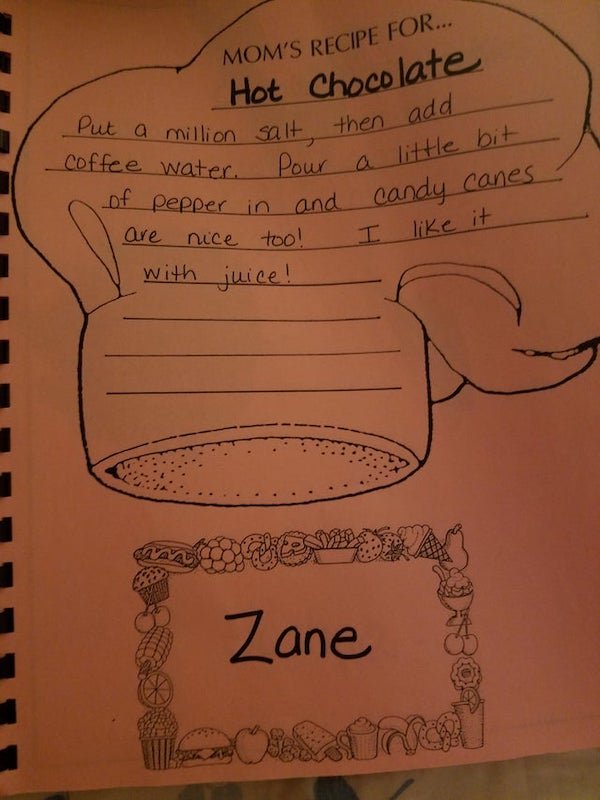 MOM'S RECIPE FOR...
Hot Chocolate
Put a million salt, then add
coffee water. Pour a little bit
of pepper in and candy canes
are nice too! I like it
with juice!
Zane